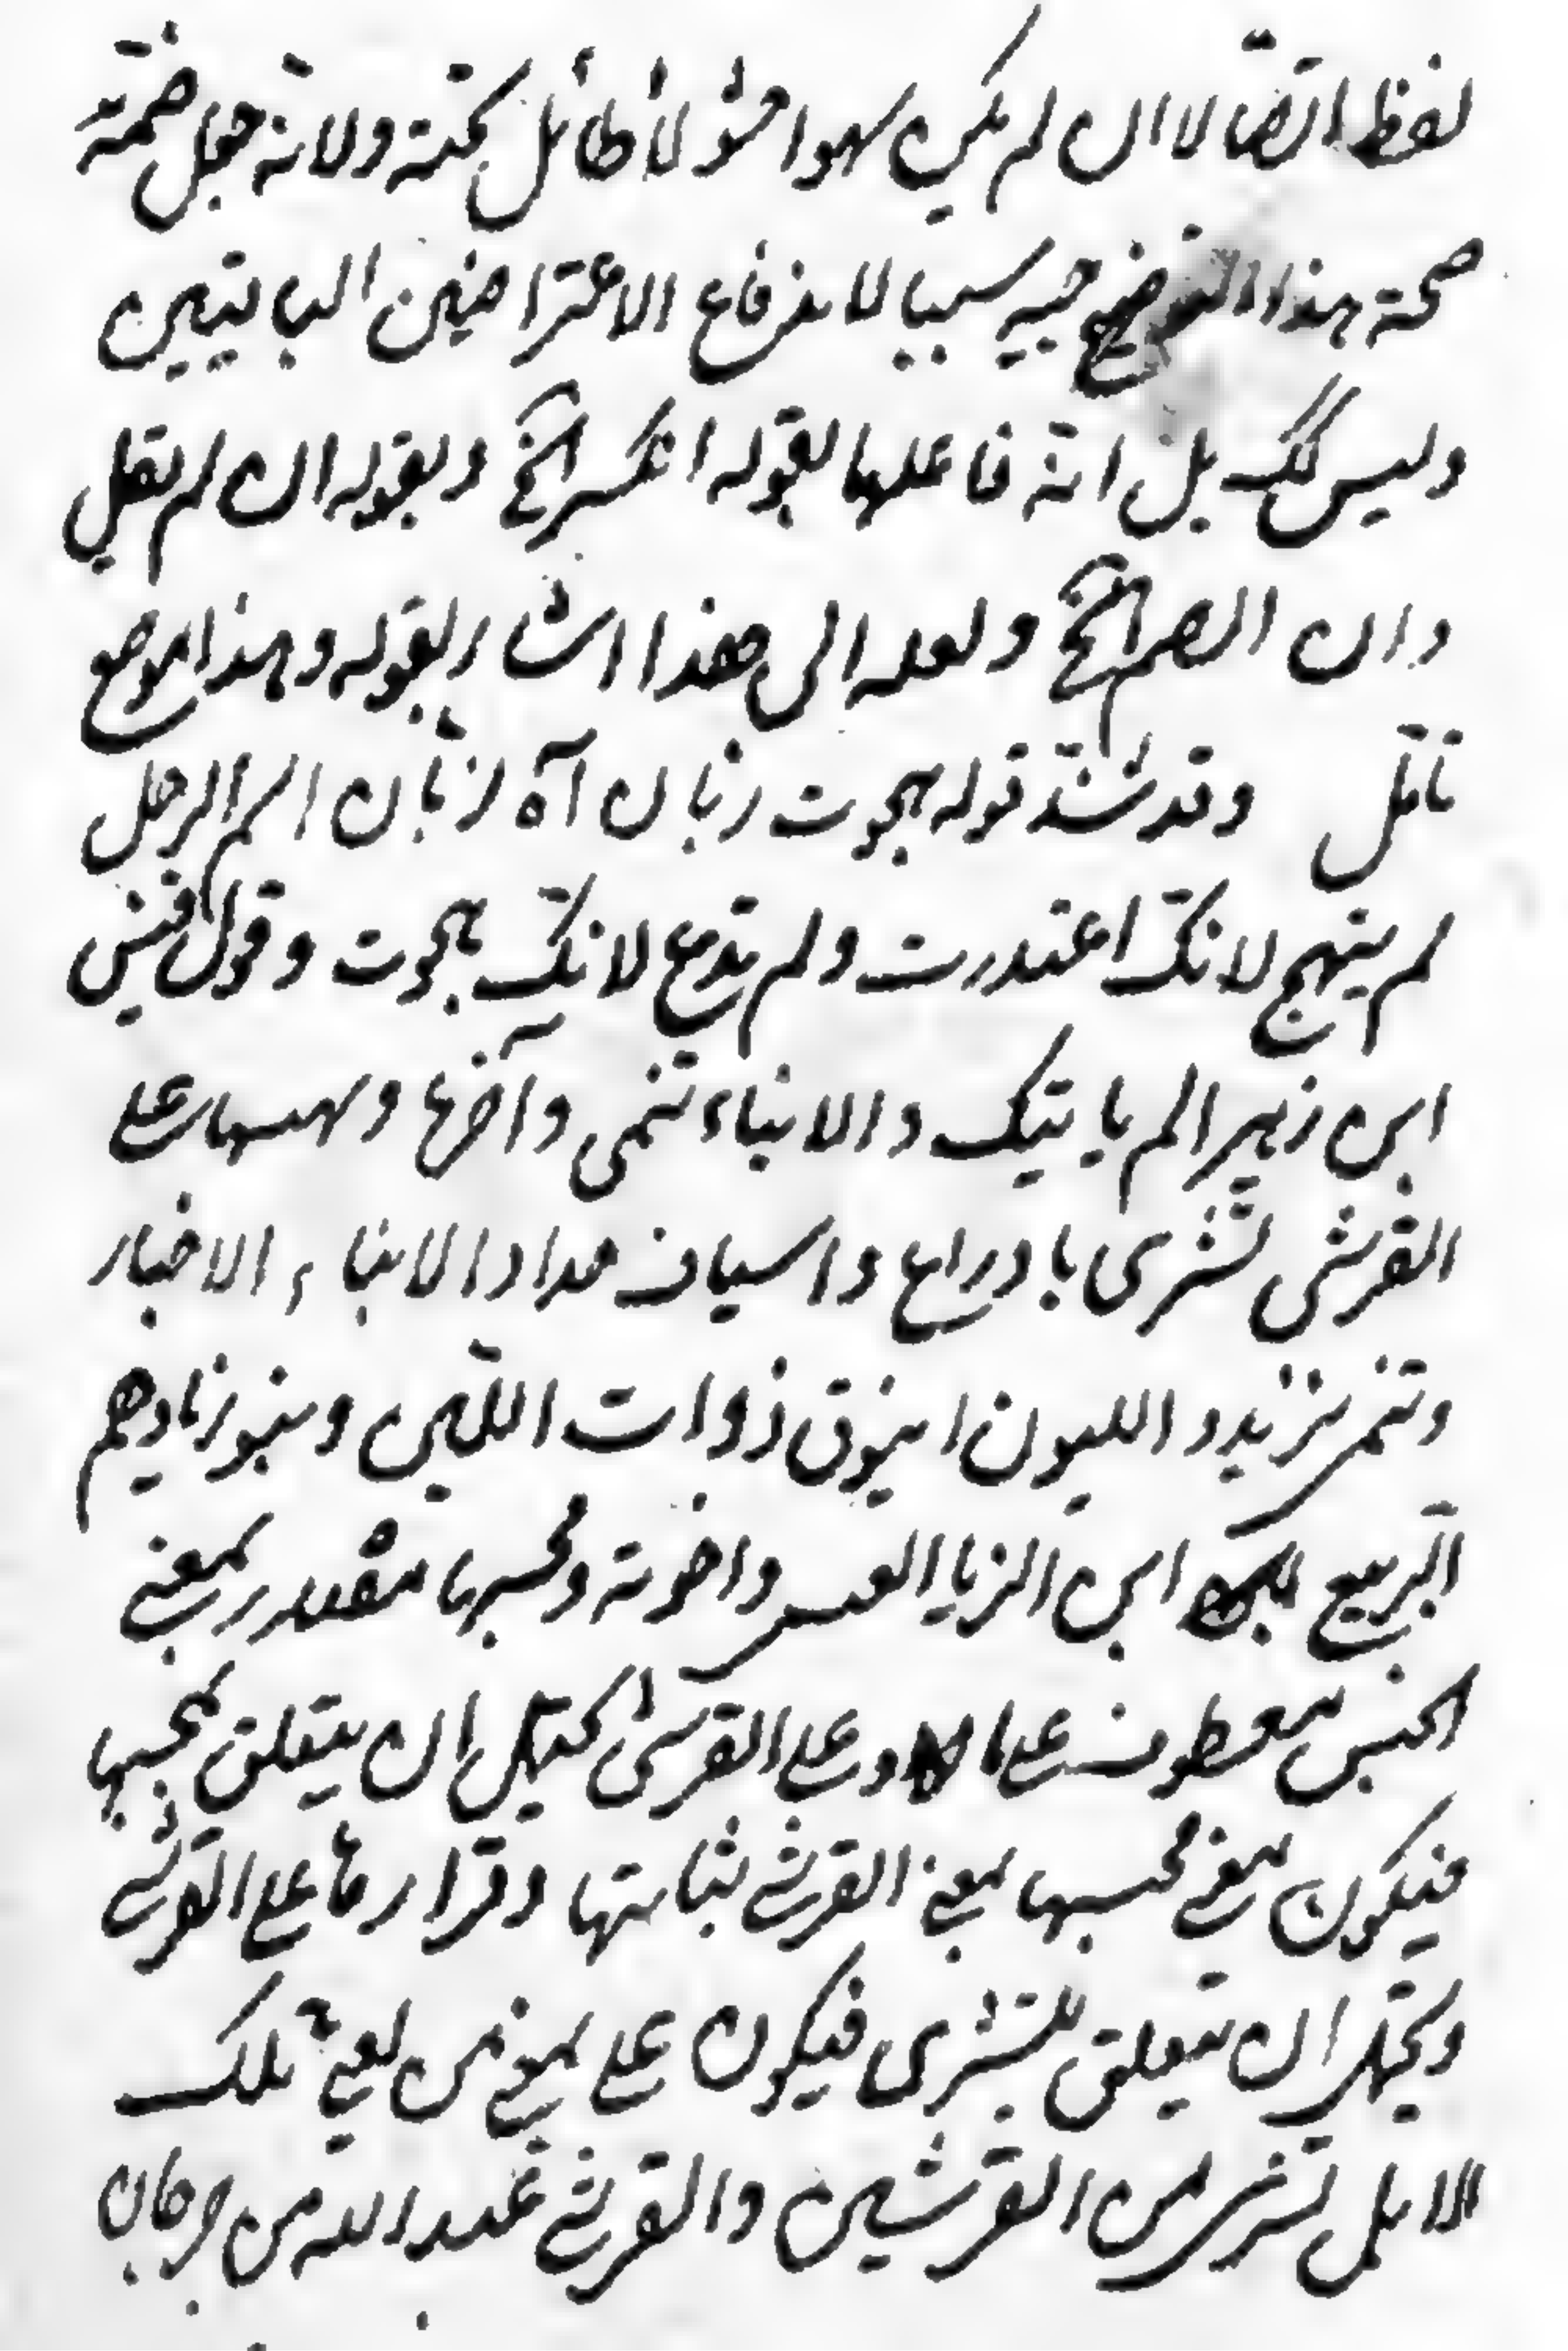 لفظ اتصالا ان لم يكن سهوا حشو لا طائل تحته ولانه جعل ضمة
صحة هذا التوضيح جيه سببا لاندفاع الاعتراضين الباقيين
وليس كك بل انه فاعلها لقوله انكسر الخ وبقوله ان لم تعل
وان الضم الخ ولعله الى هذا اشار بقوله وهذا موضع
تأمل وقد شذ قوله هجوت زبان آه زبان اسم الرجل
لم ينهج لانك اعتذرت ولم تدع لانك هجوت وقول قيس
ابن زهير الم يأتيك والانباء تنمى وآخرها ومحبسها على
القرشى تشرى بادراع واسياف حداد الانباء الاخبار
وتنمى تزيد واللبون اينوق ذوات اللبن وبنو زياد هم
الربيع ابن الزياد العبسى واخوته ومحبسها مصدر بمعنى
الحبس معطوف على ما وعلى القرشى يحتمل ان يتعلق بمحبسها
فيكون معنى محبسها بمعنى القرشى ثباتها وقرارها على القرشى
ويحتمل ان يتعلق بتشرى فيكون على بمعنى من يعنى تلك
الابل تشرى من القرشيين والقرشى عبد الله بن جدعان